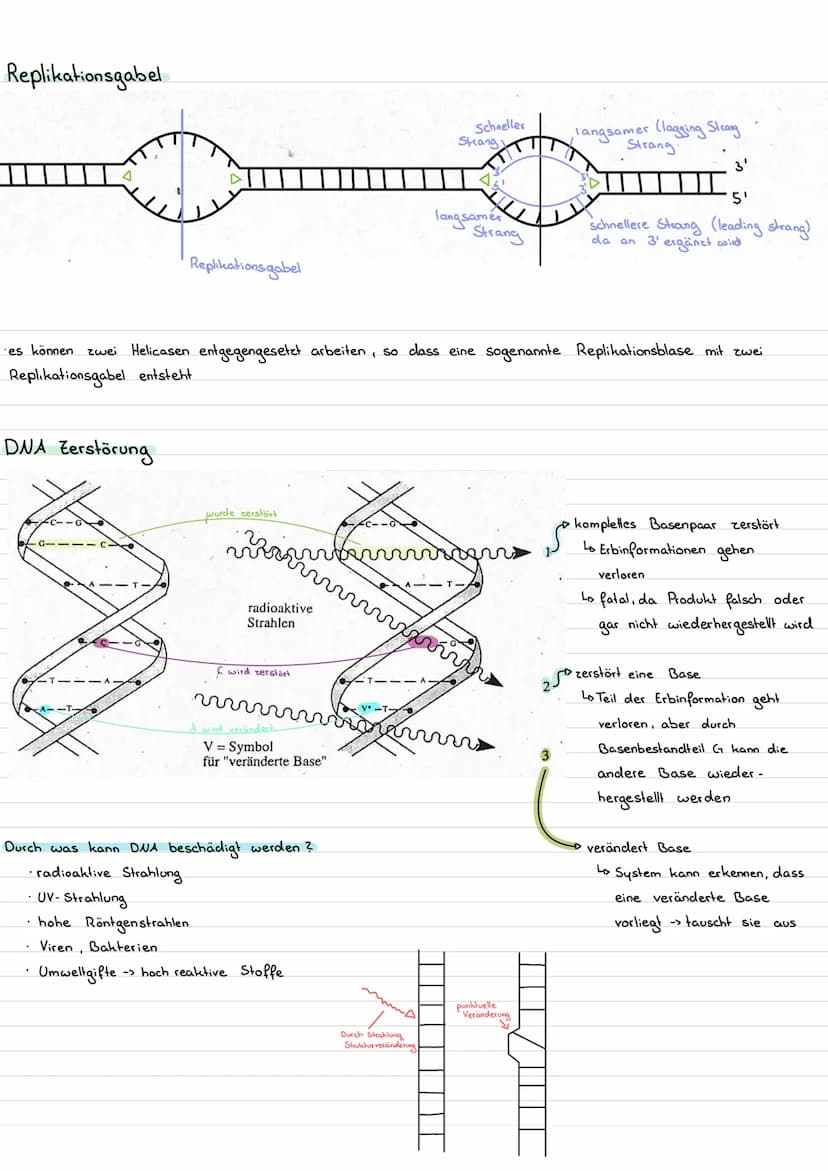 Replikationsgabel
schneller
Strang
langsamer (lagging Strang
Strang
3'
5'
langsamer
Strang
schnellere Strang (leading strang)
da an 3' ergänzt wird
Replikationsgabel
es können zwei Helicasen entgegengesetzt arbeiten, so dass eine sogenannte Replikationsblase mit zwei
Replikationsgabel entsteht
DNA Zerstörung
wurde zerstört
C--G
G----C
A---T
C--G
T----A
A--T
radioaktive
Strahlen
C wird zerstört
A wird verändert
V = Symbol
für "veränderte Base"
C--G
A---T
G
T----A
V*-T
1 komplettes Basenpaar zerstört
↳ Erbinformationen gehen
verloren
↳ fatal, da Produkt falsch oder
gar nicht wiederhergestellt wird
2 zerstört eine Base
↳ Teil der Erbinformation geht
verloren, aber durch
Basenbestandteil G kann die
andere Base wieder-
hergestellt werden
3
verändert Base
↳ System kann erkennen, dass
eine veränderte Base
vorliegt -> tauscht sie aus
Durch was kann DNA beschädigt werden?
· radioaktive Strahlung
· UV-Strahlung
· hohe Röntgenstrahlen
· Viren, Bakterien
· Umweltgifte -> hoch reaktive Stoffe
Durch Strahlung
Strukturveränderung
punktuelle
Veränderung